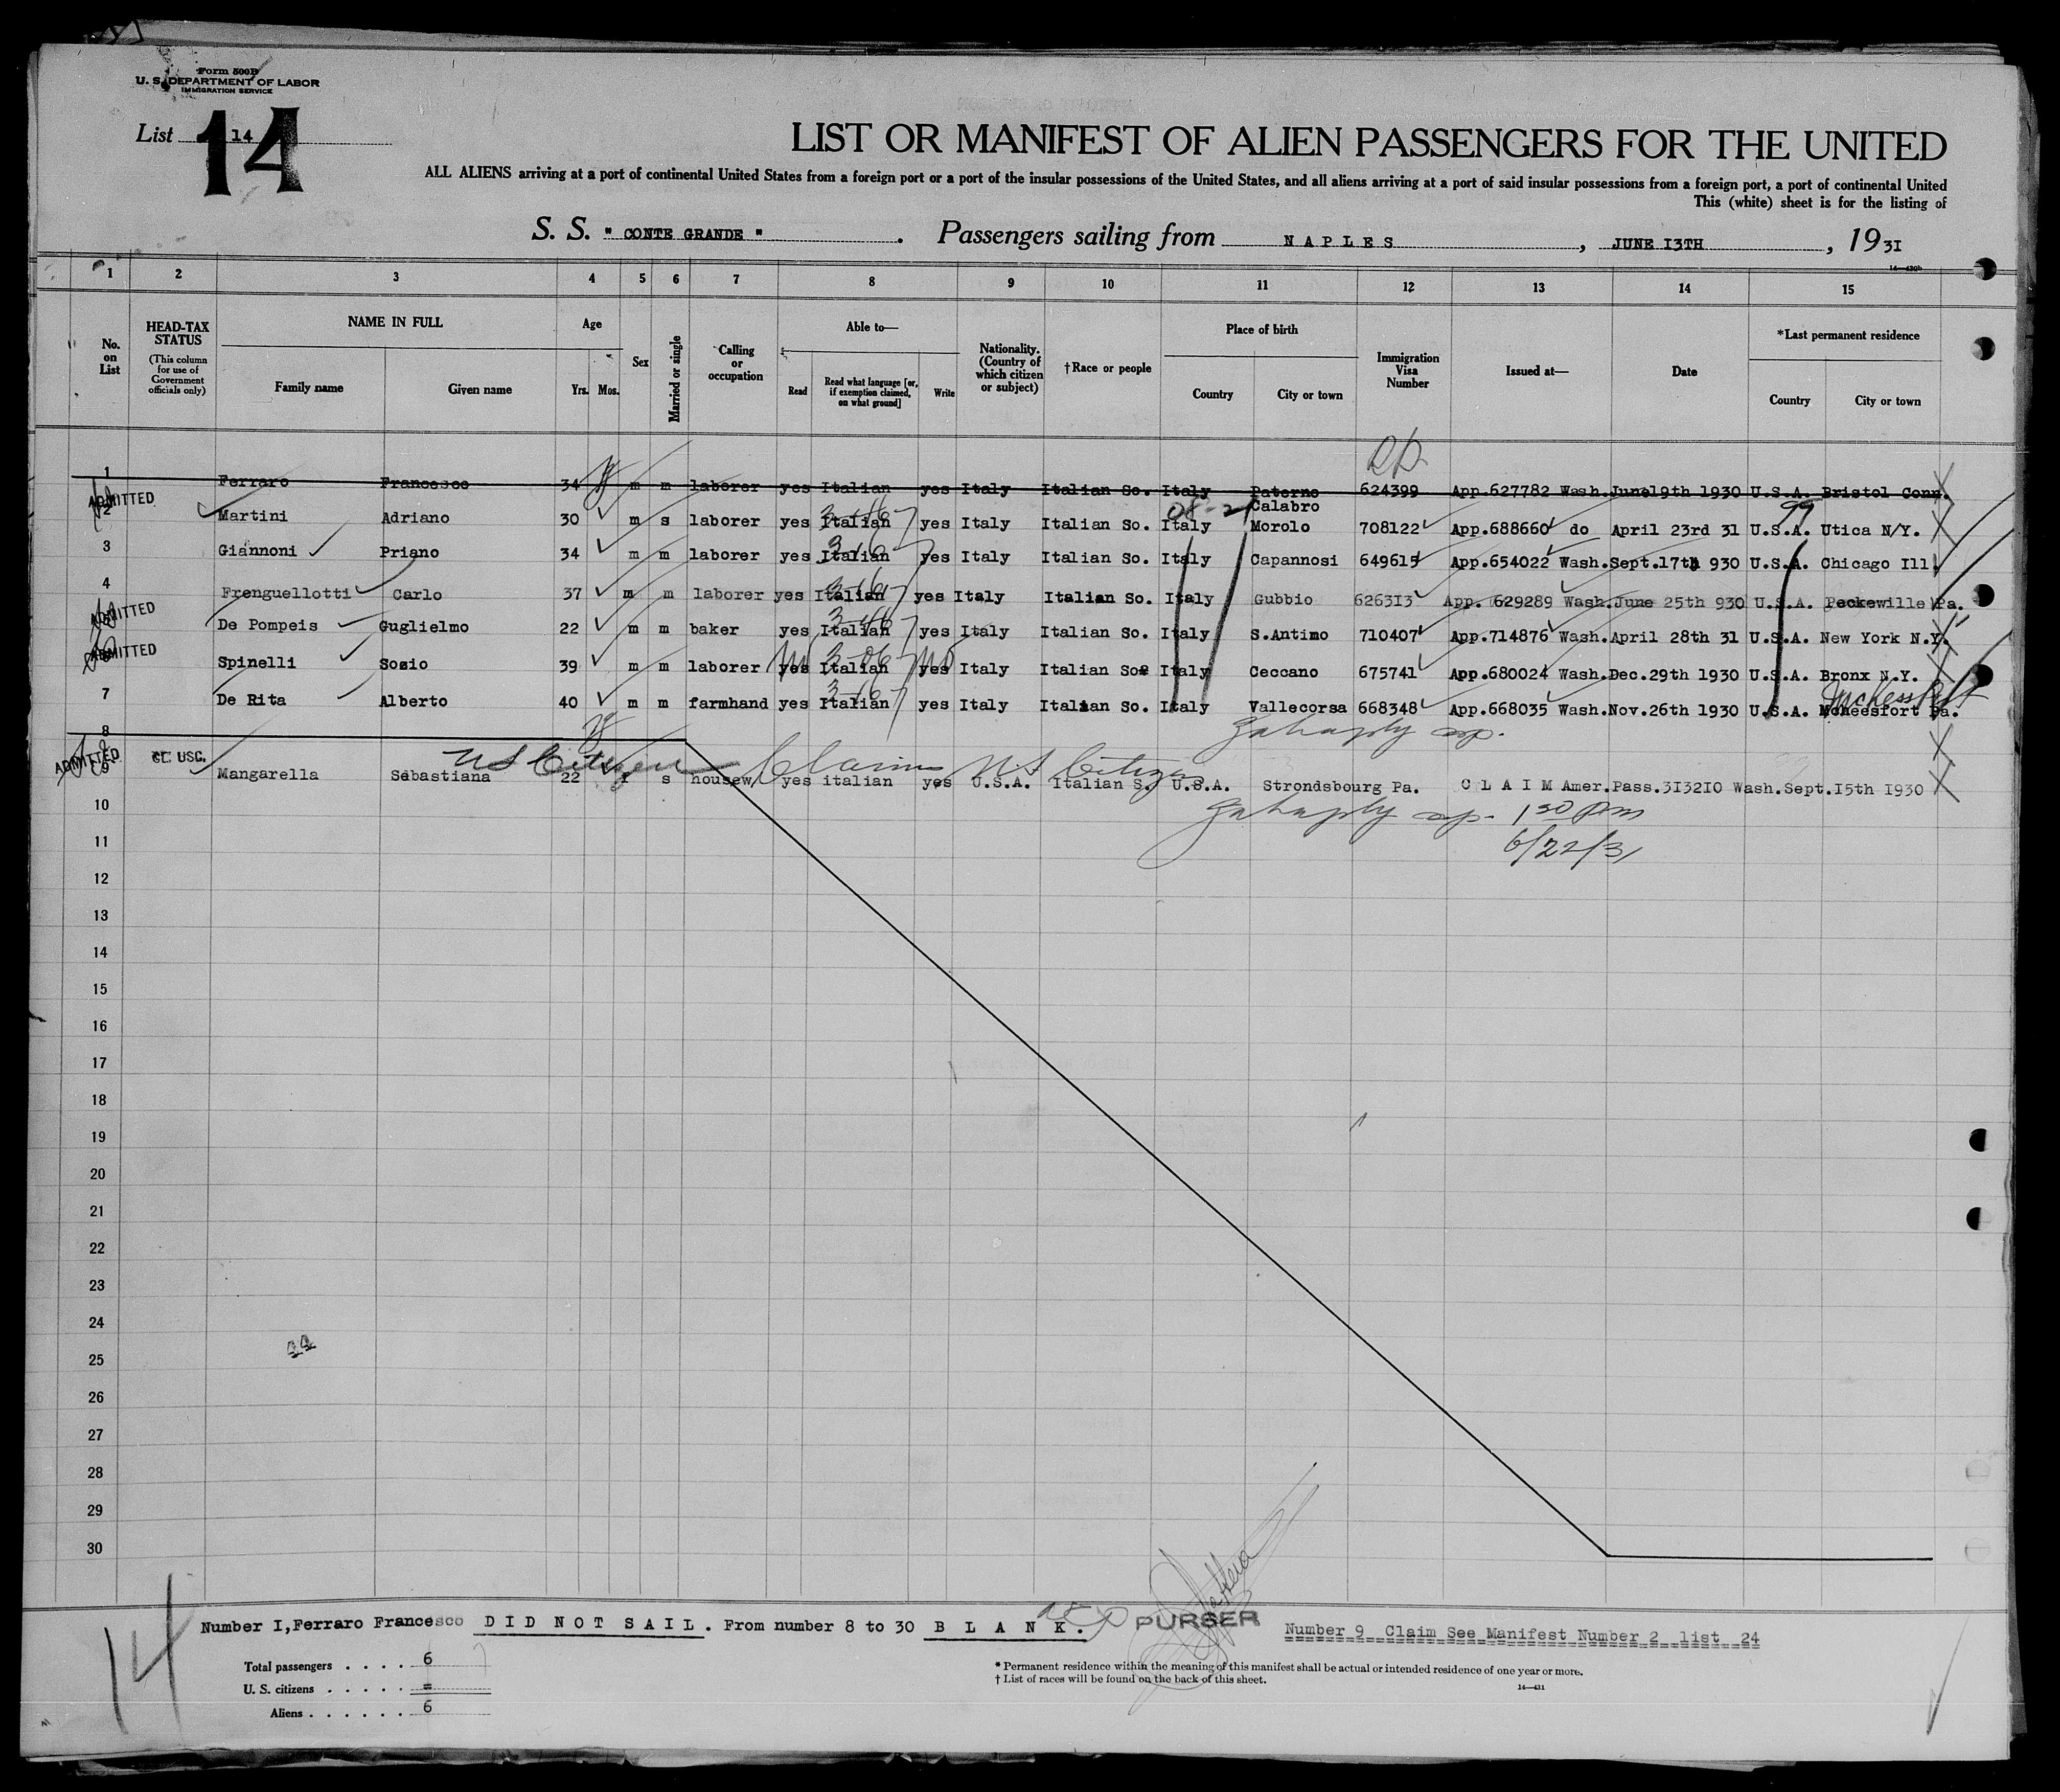 Form 500B
U. S. DEPARTMENT OF LABOR
IMMIGRATION SERVICE
List 14
14
LIST OR MANIFEST OF ALIEN PASSENGERS FOR THE UNITED
ALL ALIENS arriving at a port of continental United States from a foreign port or a port of the insular possessions of the United States, and all aliens arriving at a port of said insular possessions from a foreign port, a port of continental United
This (white) sheet is for the listing of
S. S. " CONTE GRANDE " . Passengers sailing from N A P L E S , JUNE I3TH , 1931
1 2 3 4 5 6 7 8 9 10 11 12 13 14 15
No. on List
HEAD-TAX STATUS (This column for use of Government officials only)
NAME IN FULL Family name Given name
Age Yrs. Mos.
Sex
Married or single
Calling or occupation
Able to— Read Read what language [or, if exemption claimed, on what ground] Write
Nationality. (Country of which citizen or subject)
†Race or people
Place of birth Country City or town
Immigration Visa Number
Issued at—
Date
*Last permanent residence Country City or town
1 Ferraro Francesco 34 m m laborer yes Italian yes Italy Italian So. Italy Paterno Calabro 624399 App.627782 Wash. June19th 1930 U.S.A. Bristol Conn.
ADMITTED
2 Martini Adriano 30 m s laborer yes Italian yes Italy Italian So. Italy Morolo 708122 App.688660 do April 23rd 31 U.S.A. Utica N/Y.
99
3 Giannoni Priano 34 m m laborer yes Italian yes Italy Italian So. Italy Capannosi 649615 App.654022 Wash.Sept.17th 930 U.S.A. Chicago Ill.
4 Frenguellotti Carlo 37 m m laborer yes Italian yes Italy Italian So. Italy Gubbio 626313 App. 629289 Wash.June 25th 930 U.S.A. Peckewille Pa.
ADMITTED
De Pompeis Guglielmo 22 m m baker yes Italian yes Italy Italian So. Italy S.Antimo 710407 App.714876 Wash.April 28th 31 U.S.A. New York N.Y.
ADMITTED
Spinelli Sosio 39 m m laborer yes Italian yes Italy Italian So. Italy Ceccano 675741 App.680024 Wash.Dec.29th 1930 U.S.A. Bronx N.Y.
7 De Rita Alberto 40 m m farmhand yes Italian yes Italy Italian So. Italy Vallecorsa 668348 App.668035 Wash.Nov.26th 1930 U.S.A. Mckeesfort Pa.
8
US Citizen Claims US Citizen
ADMITTED
9 CL. USC. Mangarella Sebastiana 22 f s housew. yes italian yes U.S.A. Italian S. U.S.A. Strondsbourg Pa. C L A I M Amer.Pass.3I32I0 Wash.Sept.I5th I930
10
1 30 pm
11
6/22/31
12
13
14
15
16
17
18
19
20
21
22
23
24
25
26
27
28
29
30
14
Number I,Ferraro Francesco D I D N O T S A I L . From number 8 to 30 B L A N K .
PURSER
Number 9 Claim See Manifest Number 2 list 24
Total passengers . . . . 6
U. S. citizens . . . . . =
Aliens . . . . . . 6
* Permanent residence within the meaning of this manifest shall be actual or intended residence of one year or more.
† List of races will be found on the back of this sheet.
14—431